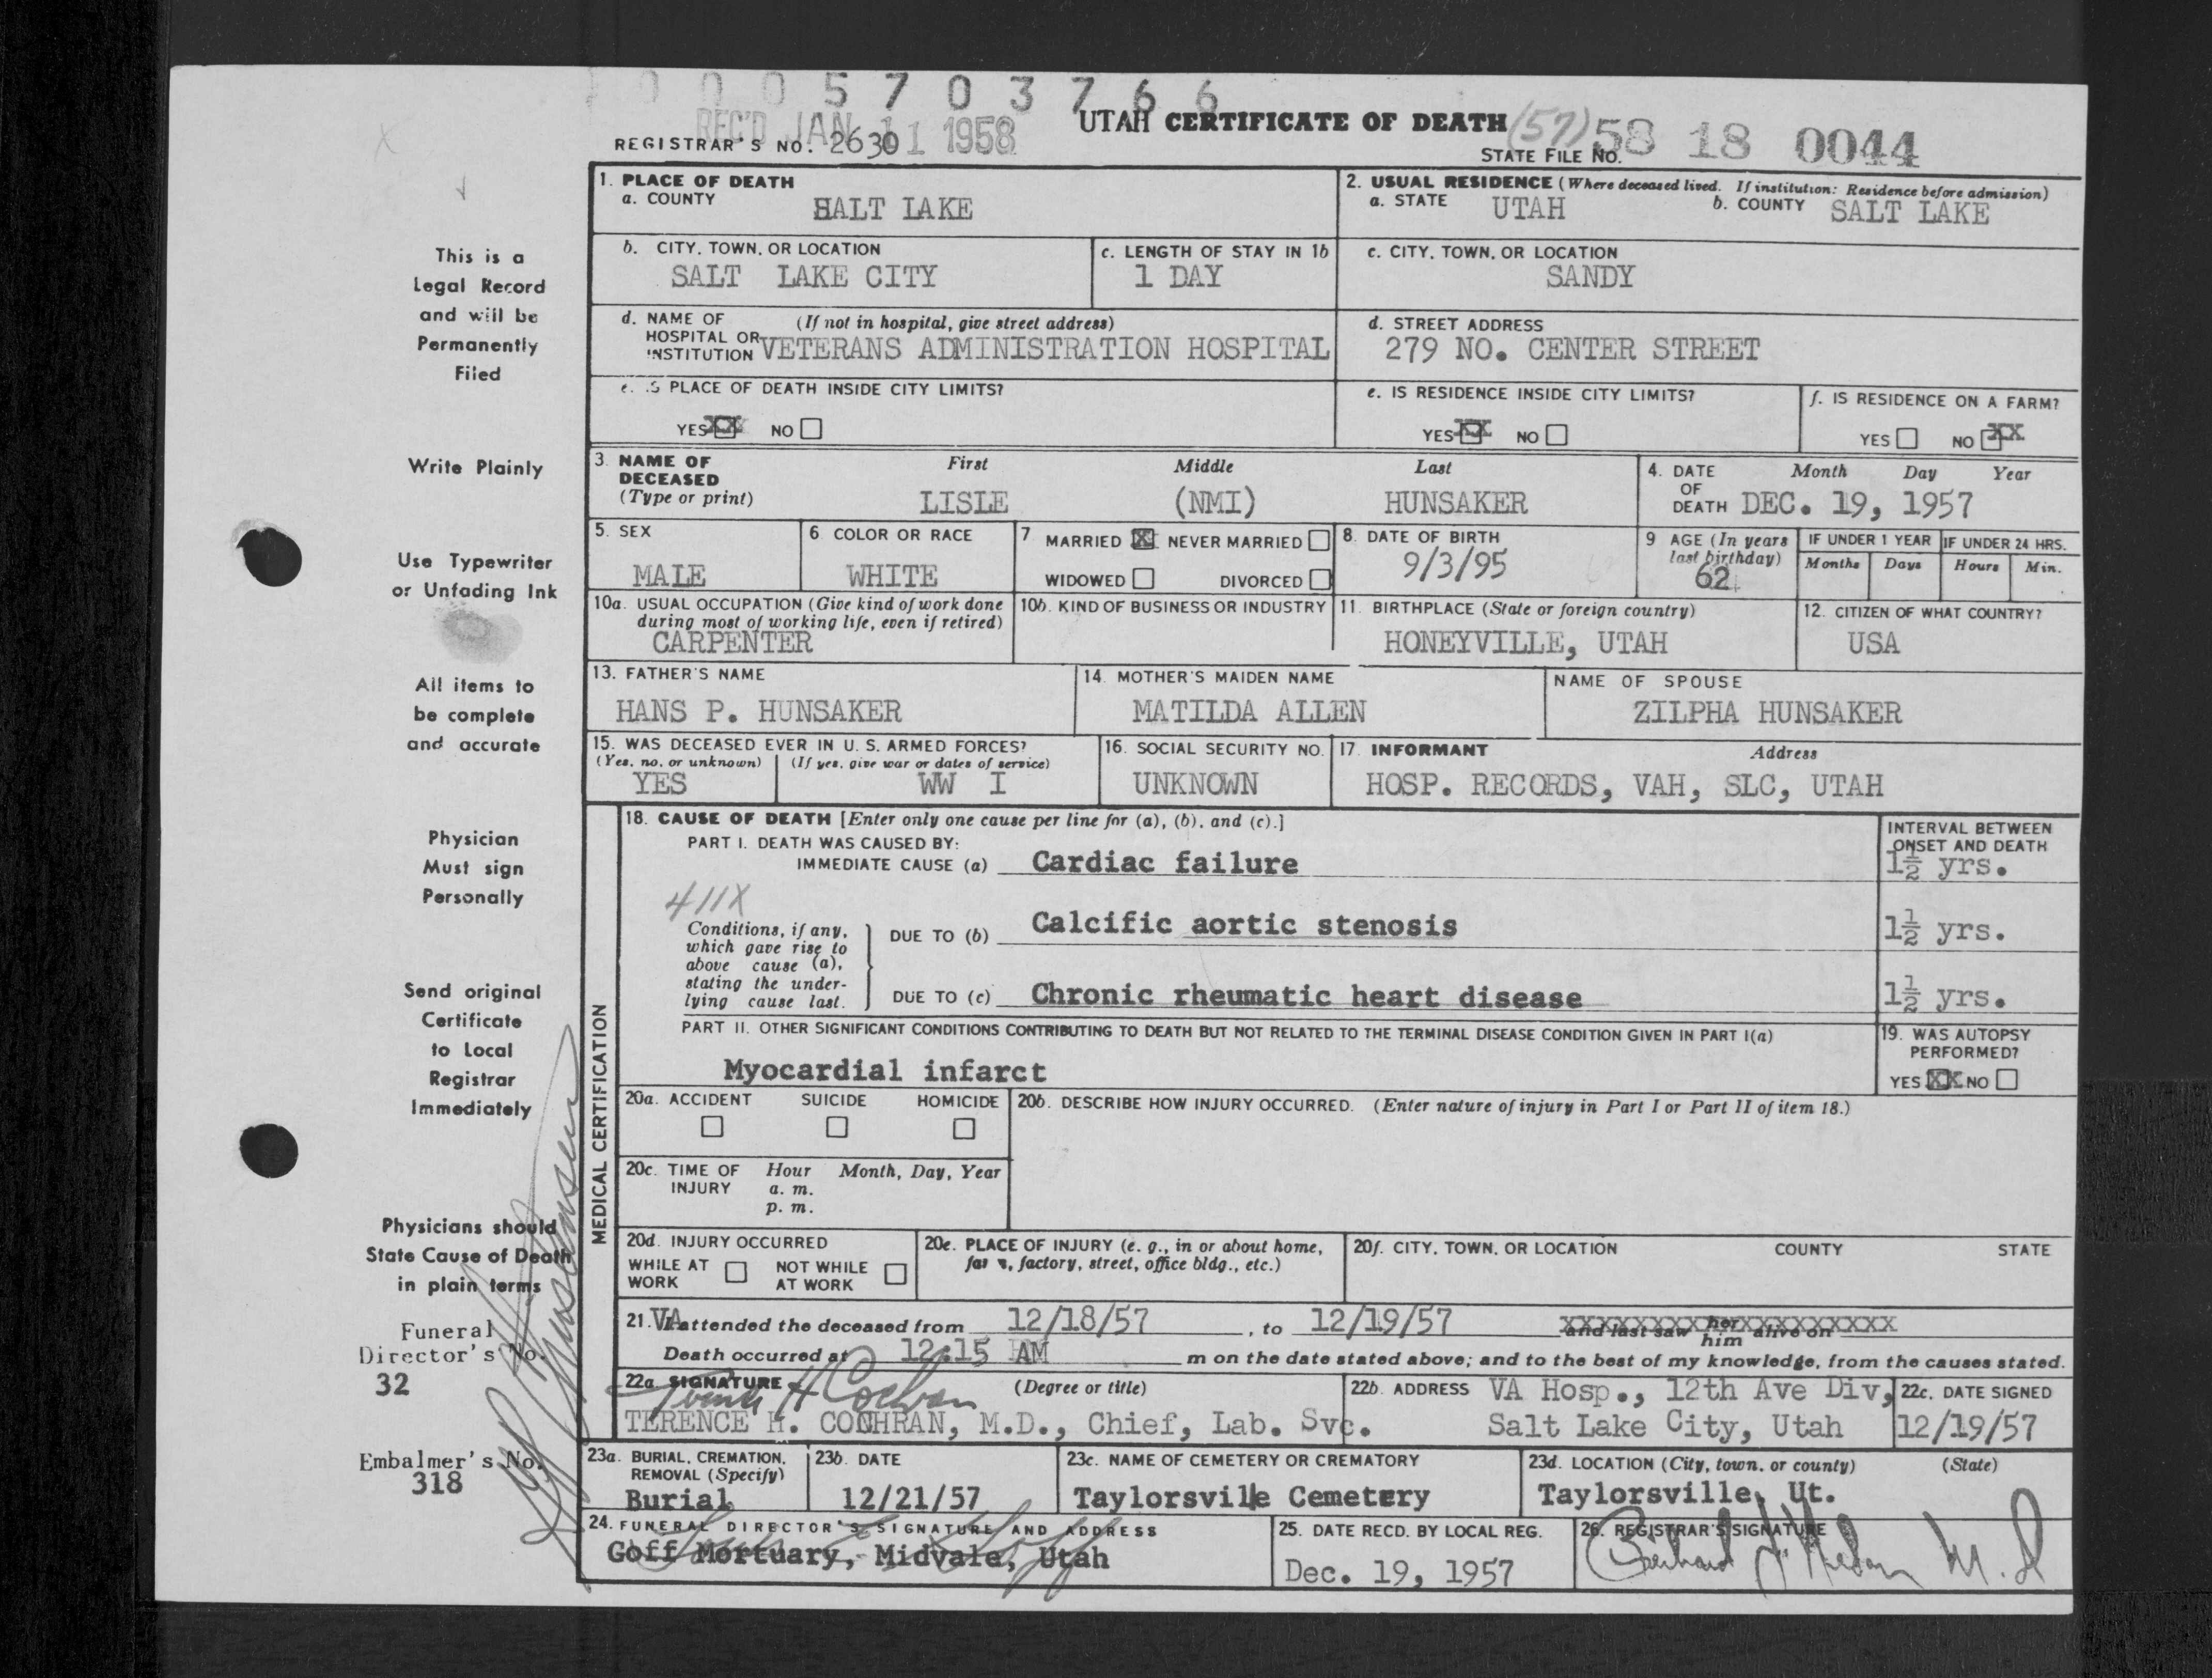 0 0 0 5 7 0 3 7 6 6
REC'D JAN 11 1958
UTAH CERTIFICATE OF DEATH (57) 58 18 0044
REGISTRAR'S NO. 2630
STATE FILE NO.
1. PLACE OF DEATH
a. COUNTY SALT LAKE
2. USUAL RESIDENCE (Where deceased lived. If institution: Residence before admission)
a. STATE UTAH b. COUNTY SALT LAKE
b. CITY, TOWN, OR LOCATION
SALT LAKE CITY
c. LENGTH OF STAY IN 1b
1 DAY
c. CITY, TOWN, OR LOCATION
SANDY
d. NAME OF (If not in hospital, give street address)
HOSPITAL OR
INSTITUTION VETERANS ADMINISTRATION HOSPITAL
d. STREET ADDRESS
279 NO. CENTER STREET
e. IS PLACE OF DEATH INSIDE CITY LIMITS?
YES XX NO
e. IS RESIDENCE INSIDE CITY LIMITS?
YES XX NO
f. IS RESIDENCE ON A FARM?
YES NO XX
3. NAME OF DECEASED (Type or print)
First Middle Last
LISLE (NMI) HUNSAKER
4. DATE OF DEATH Month Day Year
DEC. 19, 1957
5. SEX
MALE
6 COLOR OR RACE
WHITE
7 MARRIED X NEVER MARRIED
WIDOWED DIVORCED
8. DATE OF BIRTH
9/3/95
9 AGE (In years last birthday)
62
IF UNDER 1 YEAR
Months Days
IF UNDER 24 HRS.
Hours Min.
10a. USUAL OCCUPATION (Give kind of work done
during most of working life, even if retired)
CARPENTER
10b. KIND OF BUSINESS OR INDUSTRY
11. BIRTHPLACE (State or foreign country)
HONEYVILLE, UTAH
12. CITIZEN OF WHAT COUNTRY?
USA
13. FATHER'S NAME
HANS P. HUNSAKER
14. MOTHER'S MAIDEN NAME
MATILDA ALLEN
NAME OF SPOUSE
ZILPHA HUNSAKER
15. WAS DECEASED EVER IN U. S. ARMED FORCES?
(Yes, no, or unknown) (If yes, give war or dates of service)
YES WW I
16. SOCIAL SECURITY NO.
UNKNOWN
17. INFORMANT Address
HOSP. RECORDS, VAH, SLC, UTAH
MEDICAL CERTIFICATION
18. CAUSE OF DEATH [Enter only one cause per line for (a), (b), and (c).]
PART I. DEATH WAS CAUSED BY:
IMMEDIATE CAUSE (a) Cardiac failure
INTERVAL BETWEEN
ONSET AND DEATH
1½ yrs.
411X
Conditions, if any,
which gave rise to
above cause (a),
stating the under-
lying cause last.
DUE TO (b) Calcific aortic stenosis
1½ yrs.
DUE TO (c) Chronic rheumatic heart disease
1½ yrs.
PART II. OTHER SIGNIFICANT CONDITIONS CONTRIBUTING TO DEATH BUT NOT RELATED TO THE TERMINAL DISEASE CONDITION GIVEN IN PART I(a)
Myocardial infarct
19. WAS AUTOPSY
PERFORMED?
YES XX NO
20a. ACCIDENT SUICIDE HOMICIDE
20b. DESCRIBE HOW INJURY OCCURRED. (Enter nature of injury in Part I or Part II of item 18.)
20c. TIME OF INJURY Hour Month, Day, Year
a. m.
p. m.
20d. INJURY OCCURRED
WHILE AT WORK NOT WHILE AT WORK
20e. PLACE OF INJURY (e. g., in or about home,
farm, factory, street, office bldg., etc.)
20f. CITY, TOWN, OR LOCATION COUNTY STATE
21. VA attended the deceased from 12/18/57, to 12/19/57 and last saw her him alive on
Death occurred at 12:15 AM m on the date stated above; and to the best of my knowledge, from the causes stated.
22a. SIGNATURE (Degree or title)
Terence H Cochran
TERENCE H. COCHRAN, M.D., Chief, Lab. Svc.
22b. ADDRESS VA Hosp., 12th Ave Div,
Salt Lake City, Utah
22c. DATE SIGNED
12/19/57
23a. BURIAL, CREMATION,
REMOVAL (Specify)
Burial
23b. DATE
12/21/57
23c. NAME OF CEMETERY OR CREMATORY
Taylorsville Cemetery
23d. LOCATION (City, town, or county) (State)
Taylorsville, Ut.
24. FUNERAL DIRECTOR'S SIGNATURE AND ADDRESS
Goff Mortuary, Midvale, Utah
25. DATE RECD. BY LOCAL REG.
Dec. 19, 1957
26. REGISTRAR'S SIGNATURE
M.D
This is a
Legal Record
and will be
Permanently
Filed
Write Plainly
Use Typewriter
or Unfading Ink
All items to
be complete
and accurate
Physician
Must sign
Personally
Send original
Certificate
to Local
Registrar
Immediately
Physicians should
State Cause of Death
in plain terms
Funeral
Director's No.
32
Embalmer's No.
318